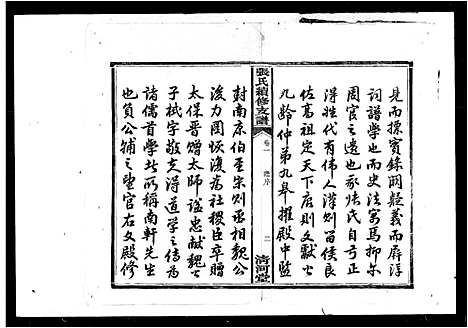 見而摭實錄闕疑義而屏浮
詞譜學也而史法寓焉抑亦
周官之遺也我張氏自黃帝
得姓代有偉人漢則留侯良
佐高祖定天下唐則文獻公
九齡仲弟九皋擢殿中監
張氏續修支譜
卷一
序
二
清河堂
封南康伯至宋則丞相魏公
浚力圖恢復為社稷臣卒贈
太保晉贈太師諡忠獻魏公
子栻字敬夫得道學之傳為
諸儒首學此所稱南軒先生
也負公輔之望官右文殿修